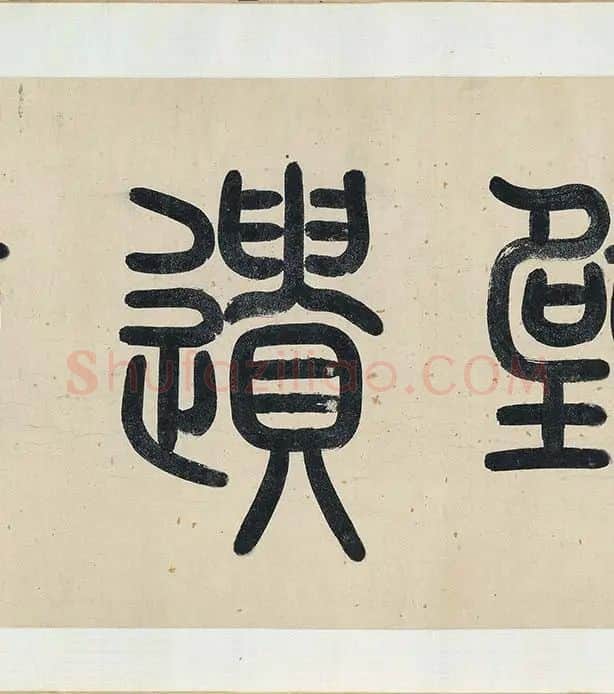 遺
Shufaziliao.COM